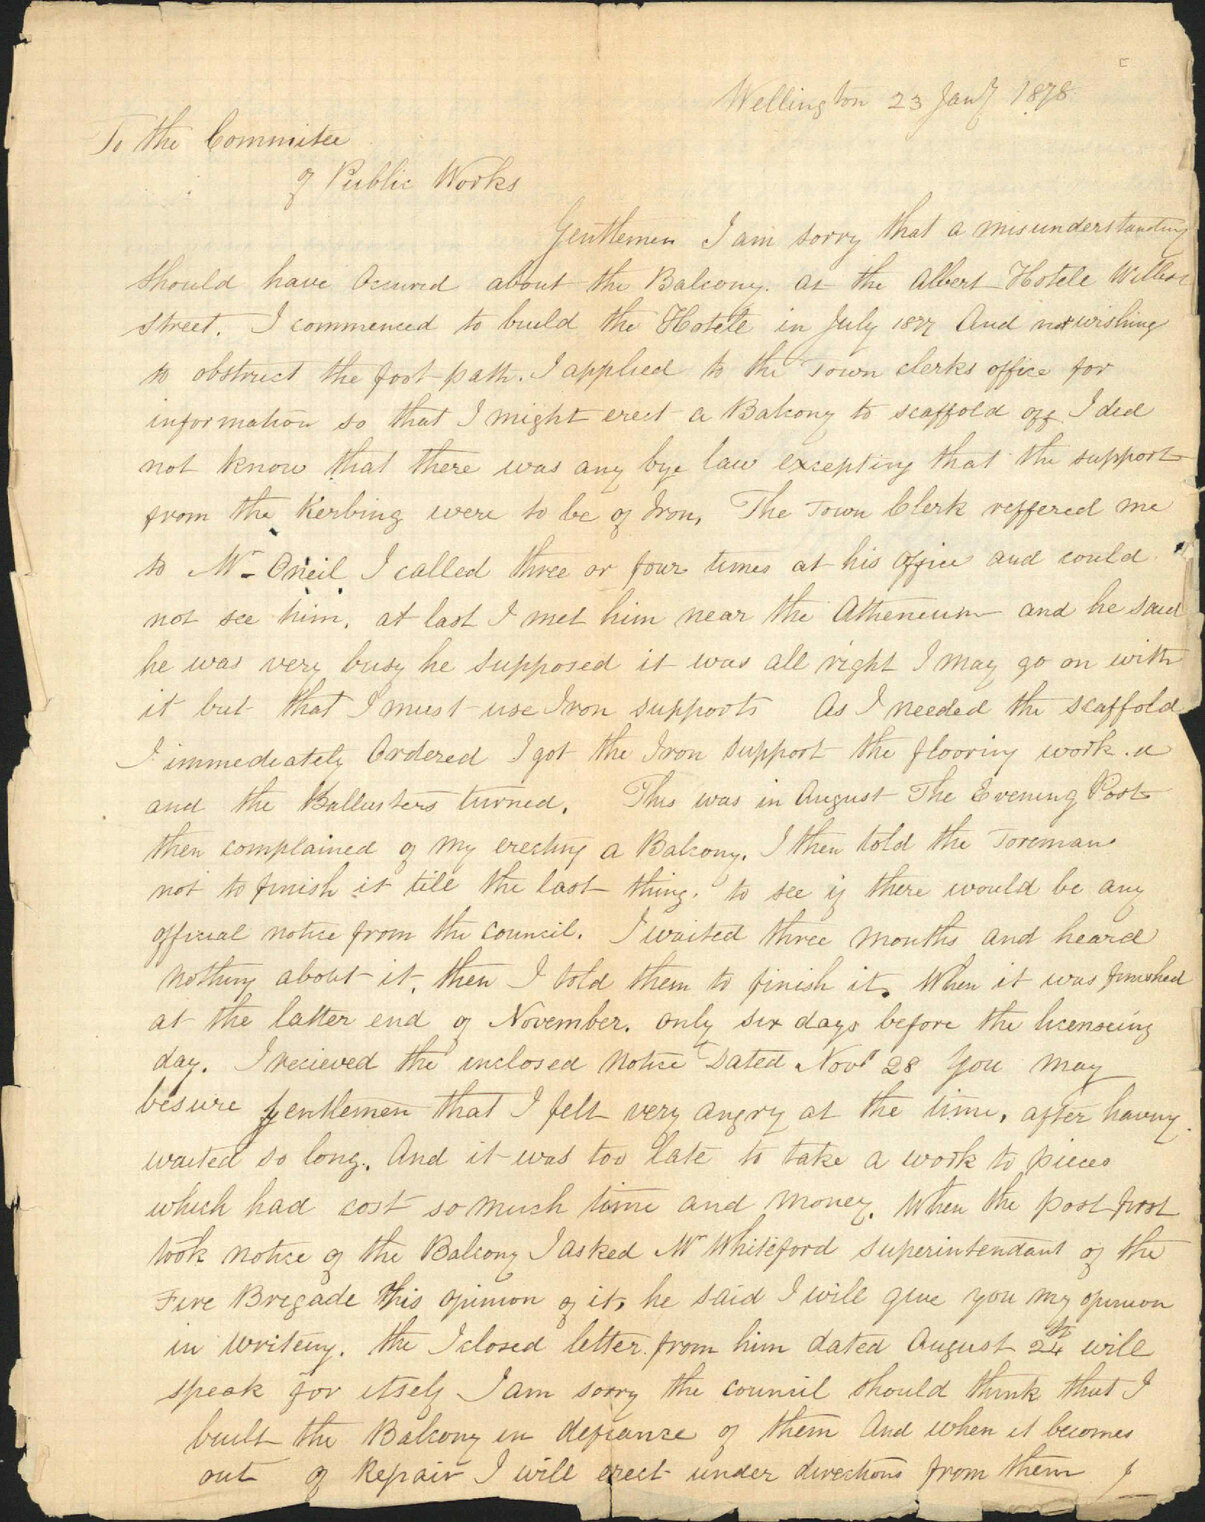 Wellington 23 Jany 1878
To the Commitee
of Public Works
Gentlemen I am sorry that a misunderstanding
should have occured about the Balcony. at the Albert Hotele Willis
street. I commenced to build the Hotele in July 1877 And not wishing
to obstruct the foot path. I applied to the Town clerks office for
information so that I might erect a Balcony to scaffold off I did
not know that there was any bye law excepting that the support
from the Kerbing were to be of Iron, The Town Clerk reffered me
to Mr Oneil I called three or four times at his office and could
not see him. at last I met him near the Atheneum and he said
he was very busy he supposed it was all right I may go on with
it but that I must use Iron supports As I needed the scaffold
I immediately Ordered I got the Iron support the flooring work
and the Ballusters turned. This was in August The Evening Post
then complained of my erecting a Balcony. I then told the Foreman
not to finish it till the last thing. to see if there would be any
official notice from the council. I waited three months and heard
nothing about it. then I told them to finish it. When it was finished
at the latter end of November. only six days before the licenseing
day. I recieved the inclosed notice Dated Novr 28 You may
besure Gentlemen that I felt very angry at the time. after having
waited so long. And it was too late to take a work to pieces
which had cost so much time and money. When the post first
took notice of the Balcony I asked Mr Whiteford superintendant of the
Fire Brigade his opinion of it. he said I will give you my opinion
in writeing. the Iclosed letter from him dated August 24th will
speak for itself I am sorry the council should think that I
built the Balcony in defiance of them And when it becomes
out of Repair I will erect under directions from them I